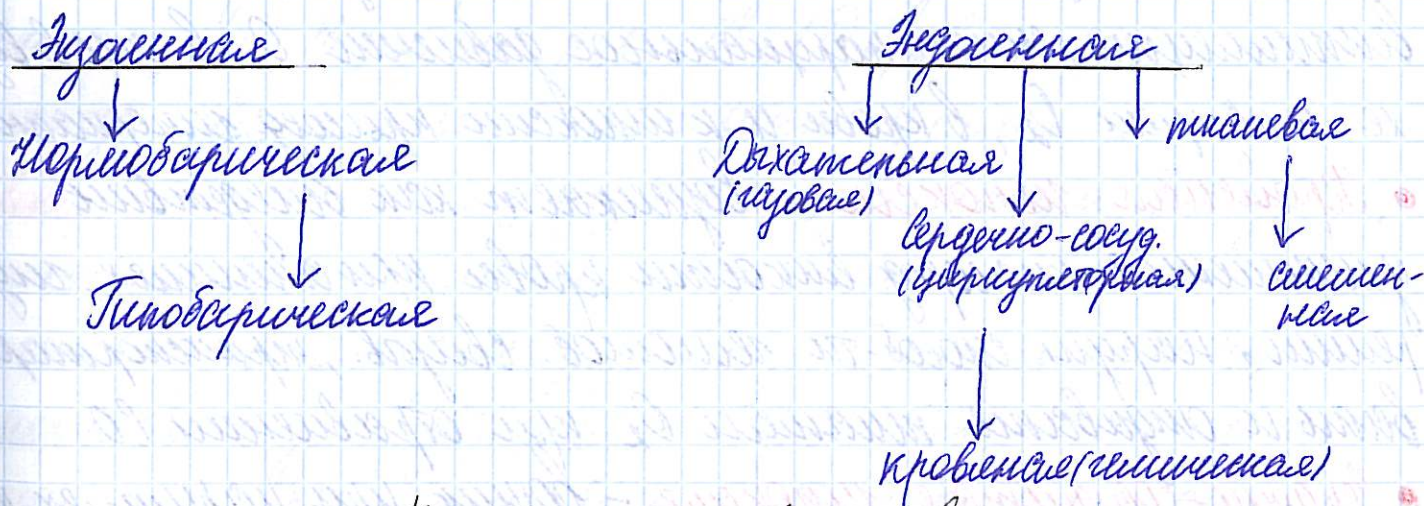 Экзогенная
Эндогенная
Нормобарическая
Гипобарическая
Дыхательная
(газовая)
Сердечно-сосуд.
(циркуляторная)
тканевая
смешен-
ная
кровяная (гемическая)